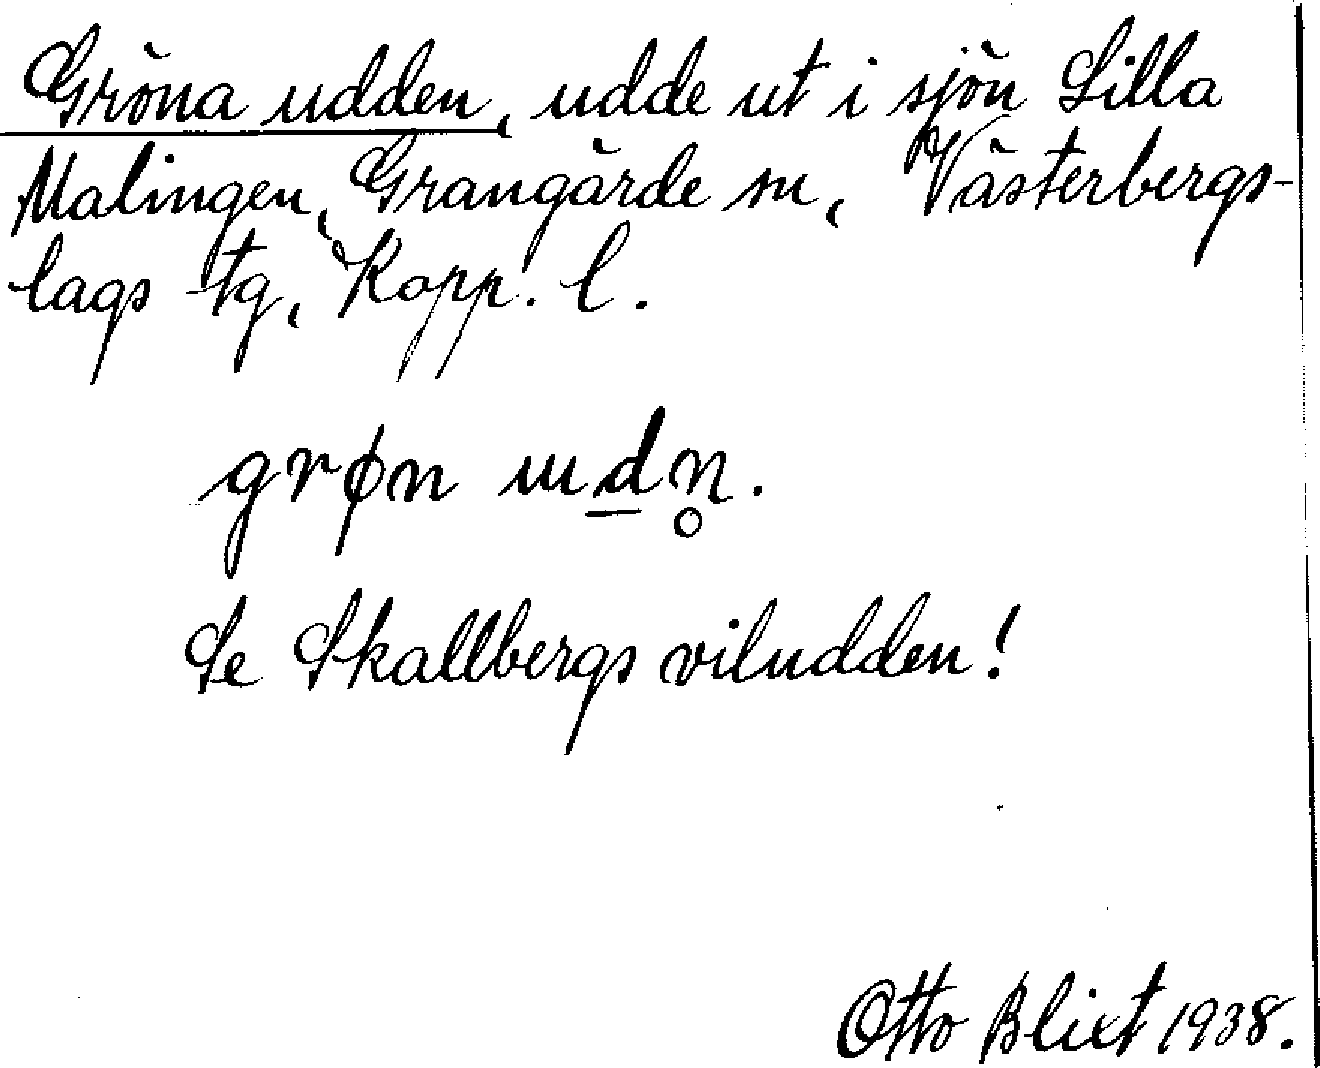 Gröna udden, udde ut i sjön Lilla
Malingen, Grangärde sn, Västerbergs-
lags tg, Kopp. l.
grøn ɯdn̥.
Se Skallbergs viludden!
Otto Blixt 1938.